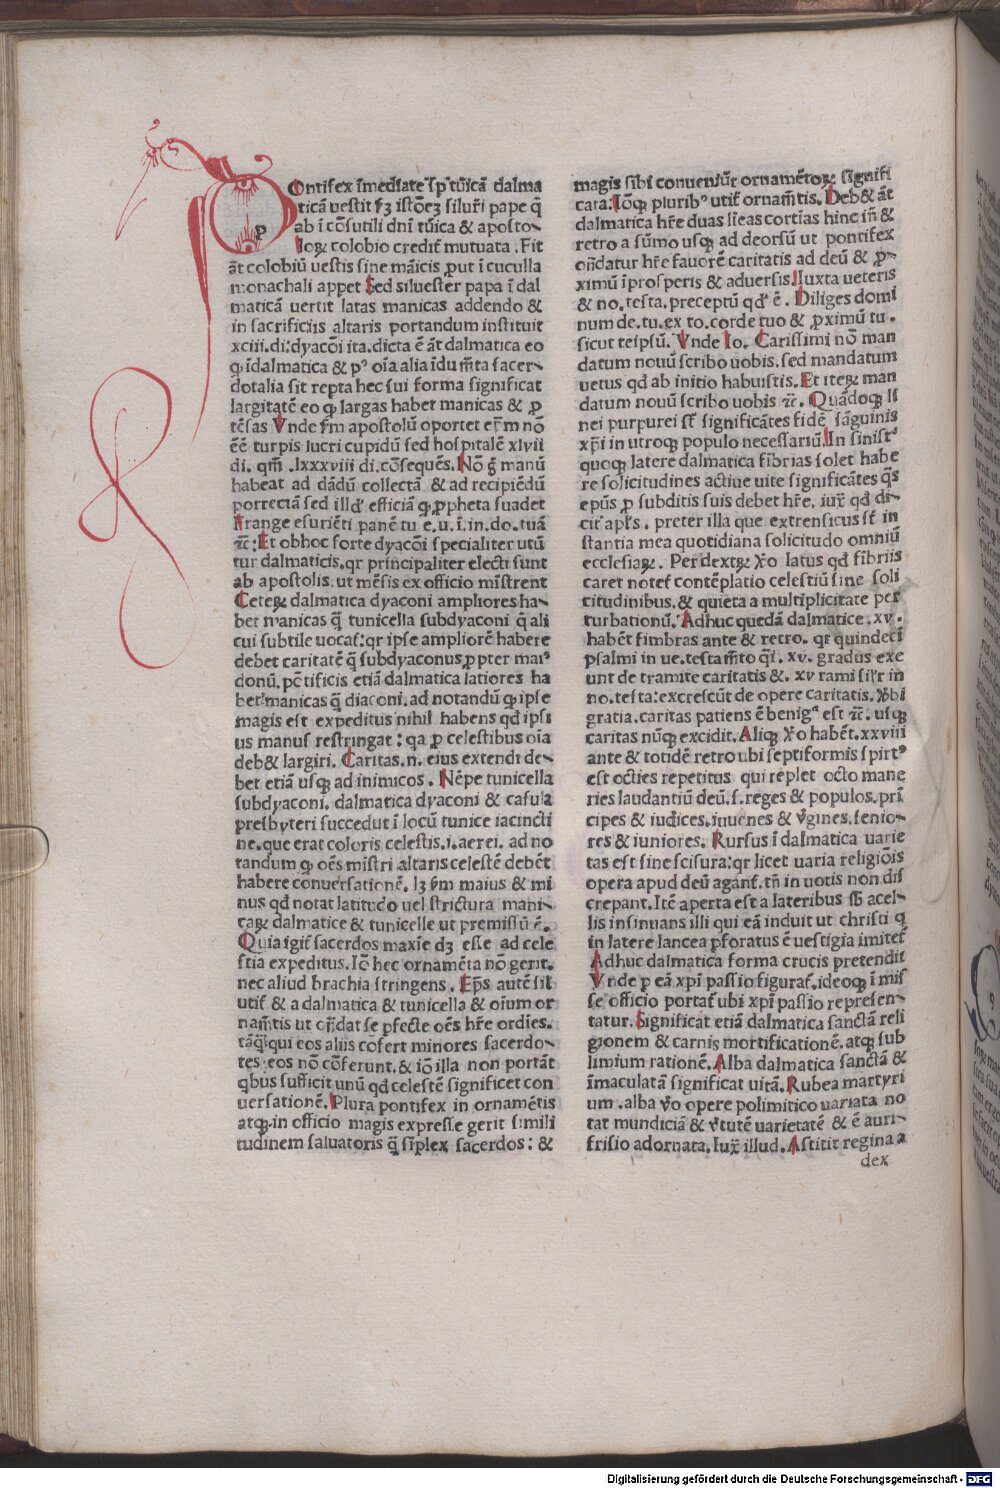 Pontifex īmediate īp̄ tūicā dalma
ticā uestit fꝫ istōeꝫ siluři pape q̄
ab ī cōsutili dnī tūica & aposto-
loꝝ colobio credit̄ mutuata. Fit
āt colobiū uestis sine māicis ꝓut ī cuculla
monachali appet Sed siluester papa ī dal
maticā uertit latas manicas addendo &
in sacrificiis altaris portandum instituit
xciii.di:dyacōi ita.dicta ē āt dalmatica eo
ꝙ īdalmatica & p⁹ oīa alia īdum̄ta sacer-
dotalia sit repta hec sui forma significat
largitatē eo ꝙ largas habet manicas & ꝓ
tēsas Vnde ẜm apostolū oportet ep̄m nō
ēē turpis lucri cupidū sed hospitalē xlvii
di. qm̄ .lxxxviii di.cōsequēs. Nō ḡ manū
habeat ad dādū collectā & ad recipiēdū
porrectā sed illd' efficiā ꝙ ꝓpheta suadet
Frange esuriēti panē tu e.u.ī.in.do.tuā
⁊c̄:Et obhoc forte dyacōi specialiter utū
tur dalmaticis.qr principaliter electi sunt
ab apostolis.ut mēsis ex officio mīstrent
Ceteꝝ dalmatica dyaconi ampliores ha-
bet manicas q̄ tunicella subdyaconi q̄ ali
cui subtile uocat̄:qr ipse ampliorē habere
debet caritatē q̄ subdyaconus,ꝓpter mai⁹
donū. pōtificis etiā dalmatica latiores ha
bet manicas q̄ diaconi.ad notandū ꝙ ipse
magis est expeditus nihil habens qd ipsi
us manus restringat : qa ꝓ celestibus oīa
deb& largiri. Caritas.n. eius extendi de-
bet etiā usqꝫ ad inimicos. Nēpe tunicella
subdyaconi. dalmatica dyaconi & casula
presbyteri succedut ī locū tunice iacincti
ne.que erat coloris celestis.i.aerei. ad no
tandum ꝙ oēs mīstri altaris celestē debēt
habere conuersationē. lꝫ ẜm maius & mi
nus qd notat latitudo uel strictura mani-
caꝝ dalmatice & tunicelle ut premissū ē.
Quia igit̄ sacerdos maxīe dꝫ esse ad cele
stia expeditus. Iō hec ornamēta nō gerit.
nec aliud brachia stringens . Ep̄s autē sil'
utit̄ & a dalmatica & tunicella & oīum or
nam̄tis ut on̄dat se ꝑfecte oēs hr̄e ordīes.
tāq̄ qui eos aliis cōfert minores sacerdo-
tes eos nō cōferunt.& iō illa non portāt
qbus sufficit unū qd celestē significet con
uersationē. Plura pontifex in ornamētis
atqꝫ in officio magis expresse gerit simili
tudinem saluatoris q̄ sīplex sacerdos : &
magis sibi conueniūt ornamētoꝝ signifi
cata: Iōqꝫ pluribꝰ utit̄ ornam̄tis. Deb& āt
dalmatica hr̄e duas līeas cortīas hinc in̄ &
retro a sūmo usqꝫ ad deorsū ut pontifex
on̄datur hr̄e fauorē caritatis ad deū & ꝓ-
ximū īprosperis & aduersis. Iuxta ueteris
& no. testa. preceptū qd' ē . Diliges domi
num de.tu.ex to.corde tuo & ꝓximū tu.
sicut teipsū. Vnde Io. Carissimi nō man
datum nouū scribo uobis. sed mandatum
uetus qd ab initio habuistis. Et iteꝝ man
datum nouū scribo uobis ⁊c̄. Quādoqꝫ lī
nei purpurei st̄ significātes fidē sāguinis
xp̄i in utroqꝫ populo necessariū. In sinist'
quoqꝫ latere dalmatica fibrias solet habe
re solicitudines actiue uite significātes q̄s
ep̄us ꝓ subditis suis debet hr̄e. iux̄ qd di-
cit apl's . preter illa que extrensicus st̄ in
stantia mea quotidiana solicitudo omniū
ecclesiaꝝ. Per dextꝝ v̊o latus qd fibriis
caret notet̄ contēplatio celestiū sine soli
citudinibus.& quieta a multiplicitate per
turbationū. Adhuc quedā dalmatice .xv.
habēt fimbras ante & retro. qr quindecī
psalmi in ue.testam̄to q̄i. xv. gradus exe
unt de tramite caritatis &. xv rami sil'r in
no.testa:excrescūt de opere caritatis. v̊bi
gratia.caritas patiens ē benigᵃ est ⁊c̄. usqꝫ
caritas nūqꝫ excidit. Aliqꝫ v̊o habēt.xxviii
ante & totidē retro ubi septiformis spirt⁹
est octies repetitus qui replet octo mane
ries laudantiū deū.s.reges & populos.prī
cipes & iudices.iuuenes & v̊gines.senio-
res & iuniores. Rursus ī dalmatica uarie
tas est sine scisura:qr licet uaria religiōis
opera apud deū agant̄. tn̄ in uotis non dis
crepant. Itē aperta est a lateribus sb̄ acel-
lis insinuans illi qui eā induit ut christi q
in latere lancea ꝑforatus ē uestigia imitet̄
Adhuc dalmatica forma crucis pretendit
Vnde ꝑ eā xp̄i passio figurat̄.ideoqꝫ ī mis
se officio portat̄ ubi xp̄i passio represen-
tatur. Significat etiā dalmatica sanctā reli
gionem & carnis mortificationē.atqꝫ sub
limium rationē. Alba dalmatica sanctā &
īmaculatā significat uitā. Rubea martyri
um.alba v̊o opere polimitico uariata no
tat mundiciā & v̊tutē uarietatē & ē auri-
frisio adornata. Iux̄ illud. Astitit regina a
dex
Digitalisierung gefördert durch die Deutsche Forschungsgemeinschaft - DFG